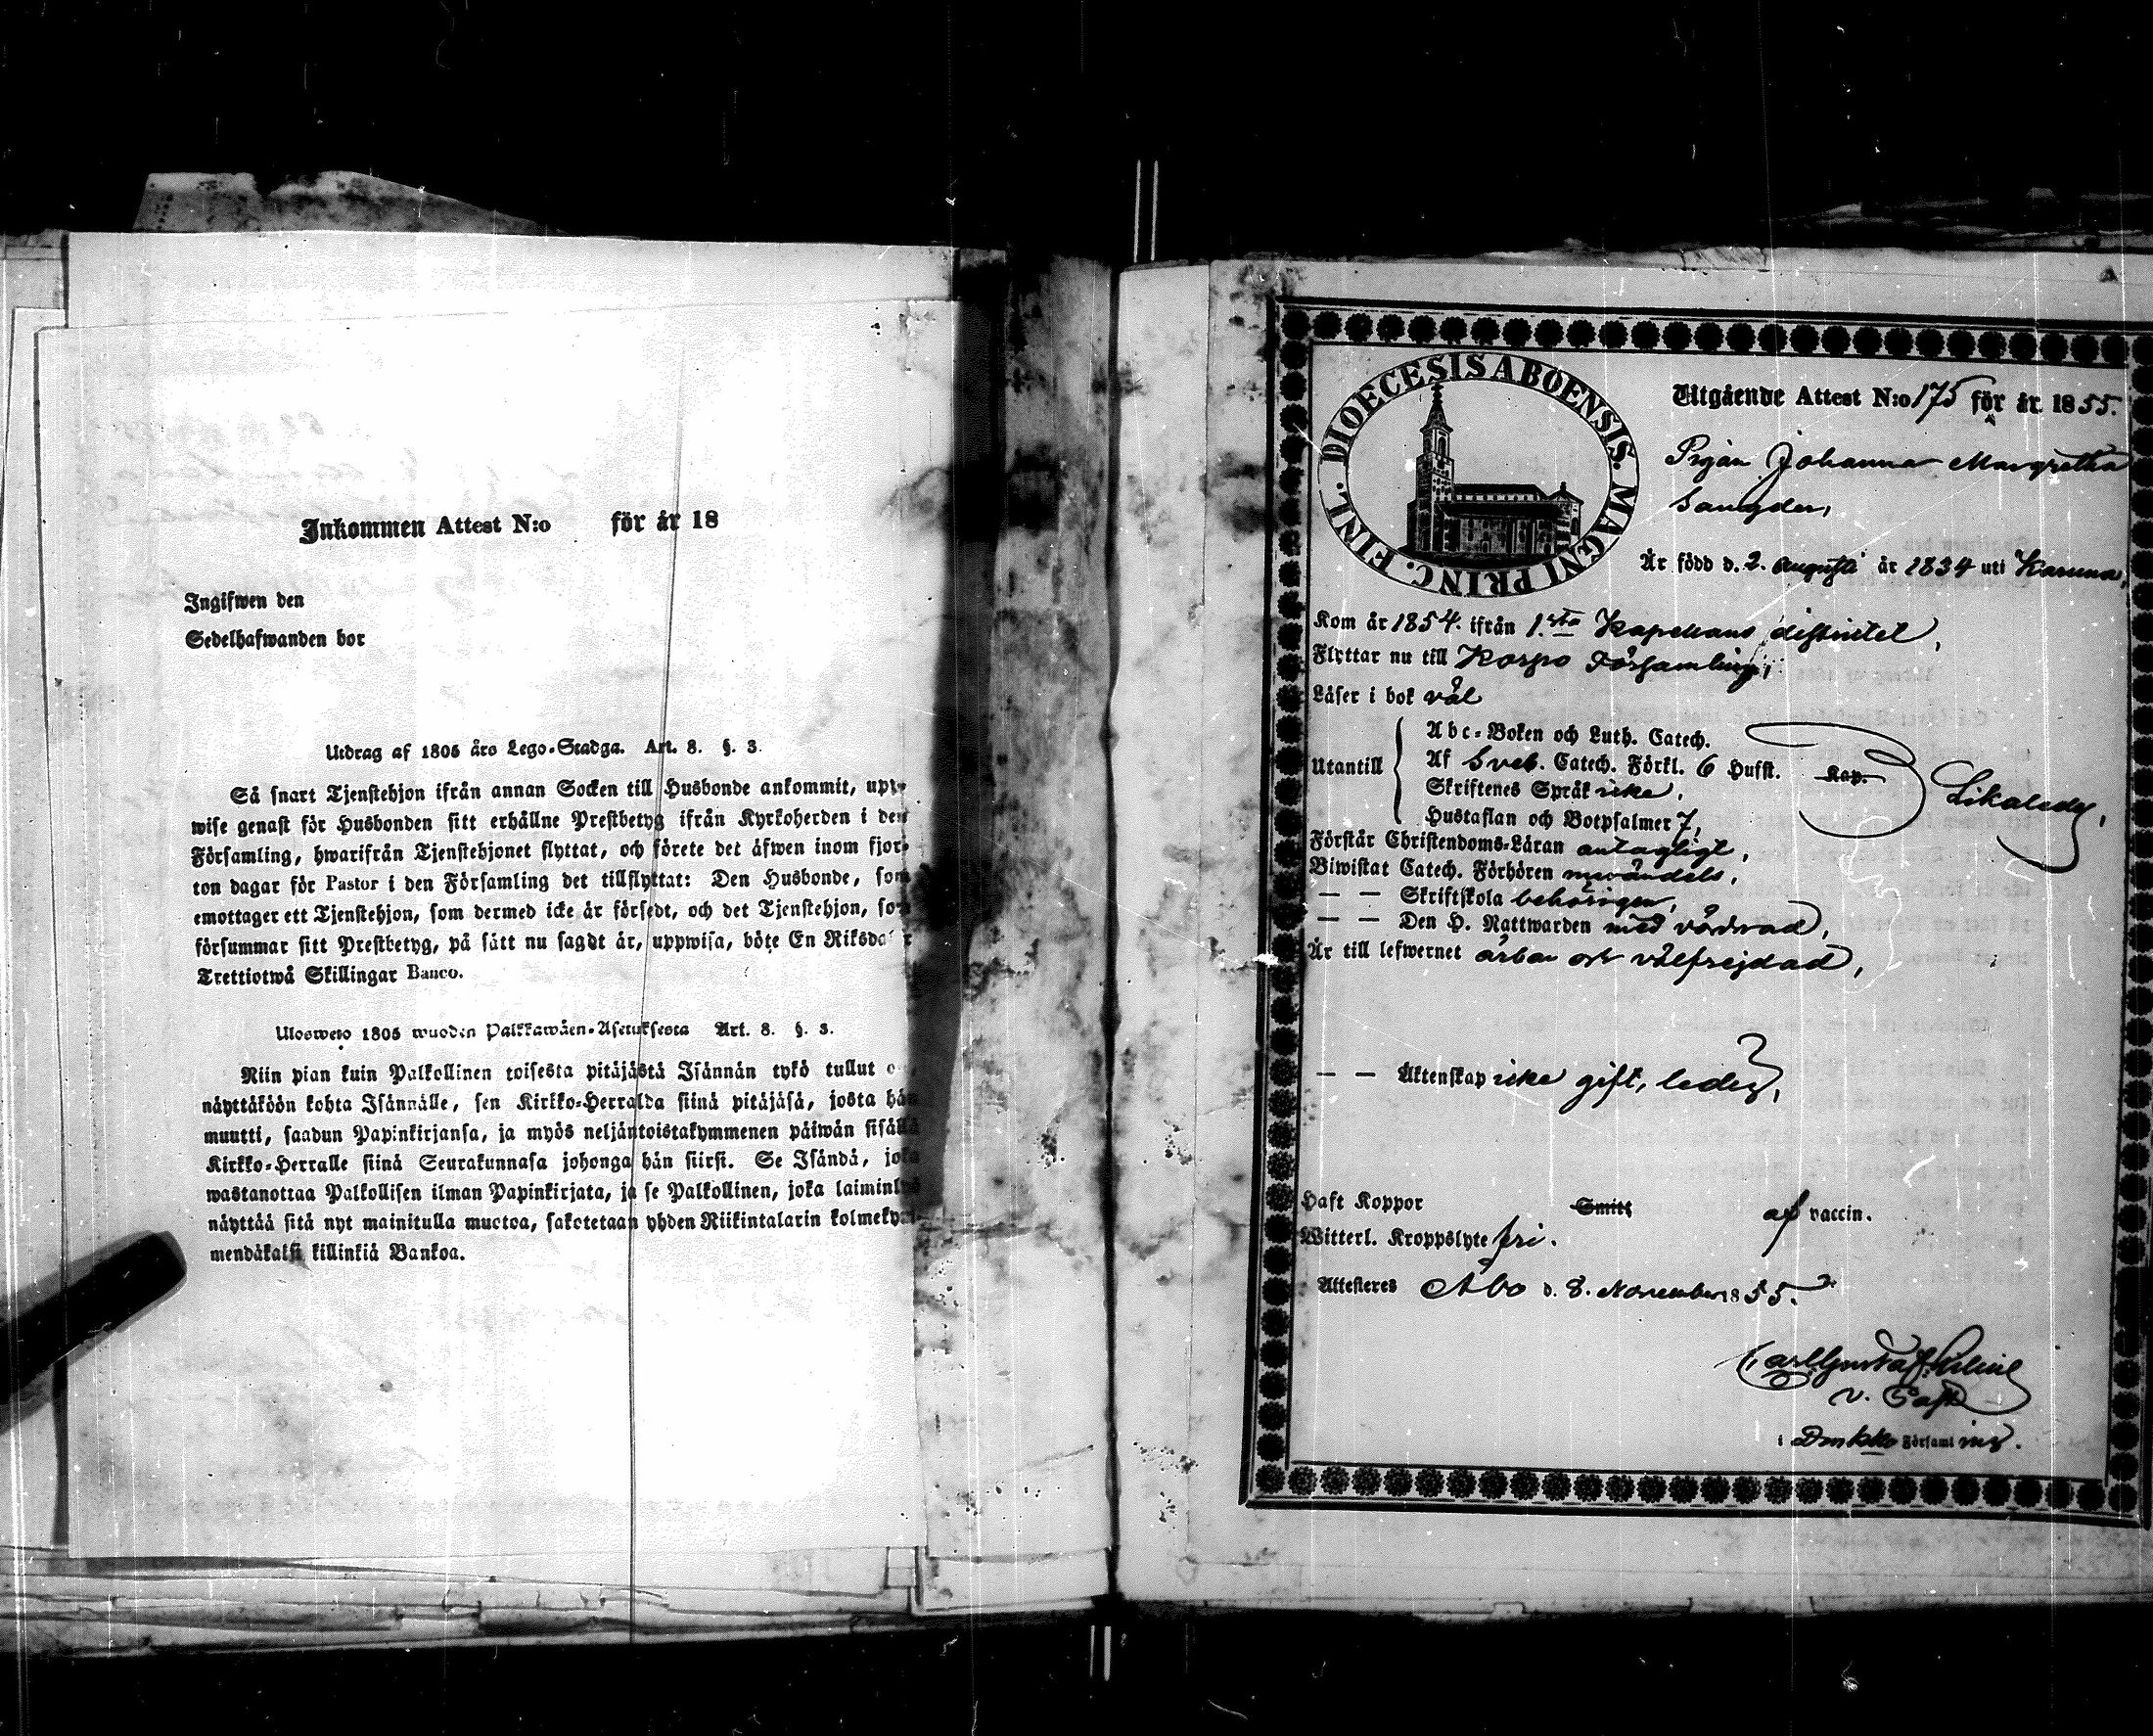 Inkommen Attest N:o för år 18
Ingifwen den
Sedelhafwanden bor
Utdrag af 1805 års Lego-Stadga. Art. 8. §. 3.
Så snart Tjenstehjon ifrån annan Socken till Husbonde ankommit, upp-
wise genast för Husbonden sitt erhållne Prestbetyg ifrån Kyrkoherden i den
Församling, hwarifrån Tjenstehjonet flyttat, och förete det äfwen inom fjor-
ton dagar för Pastor i den Församling det tillflyttat: Den Husbonde, som
emottager ett Tjenstehjon, som dermed icke är försedt, och det Tjenstehjon, som
försummar sitt Prestbetyg, på sätt nu sagdt är, uppwisa, böte En Riksdaler
Trettiotwå Skillingar Banco.
Ulosweto 1805 wuoden Palkkawäen-Asetuksesta Art. 8. §. 3.
Niin pian kuin Palkollinen toisesta pitäjästä Isännän tykö tullut o
näyttäköön kohta Isännälle, sen Kirkko-Herralda siinä pitäjäsä, josta hän
muutti, saadun Papinkirjansa, ja myös neljäntoistakymmenen päiwän sisällä
Kirkko-Herralle siinä Seurakunnasa johonga hän siirsi. Se Isändä, joka
wastanottaa Palkollisen ilman Papinkirjata, ja se Palkollinen, joka laiminlyö
näyttää sitä nyt mainitulla muotoa, sakotetaan yhden Riikintalarin kolmekym
mendäkaksi killinkiä Bankoa.
DIOECESIS ABOENSIS. MAGNI PRINC. FINL.
Utgående Attest N:o 175 för år 1855.
Pigan Johanna Margretha
Är född d. 2. Augusti år 1834 uti Karuna,
Kom år 1854. ifrån 1:sta Kapellans distriktet,
Flyttar nu till Korpo Församling,
Läser i bok väl
Utantill
Abc-Boken och Luth. Catech.
Af Sveb. Catech. Förkl. 6 Hufst. Kap.
Skriftenes Språk icke,
Hustaflan och Botpsalmer 7,
Likaledes,
Förstår Christendoms-Läran antagligt,
Biwistat Catech. Förhören
— — Skriftskola behörigen,
— — Den H. Nattwarden med vördnad,
Är till lefwernet ärbar och välfrejdad,
— — Äktenskap icke gift, ledig,
Haft Koppor Smitt af vaccin.
Witterl. Kroppslyte fri.
Attesteres Åbo d. 8. November 1855.
Carl Gustaf
v. Past
i Församling.